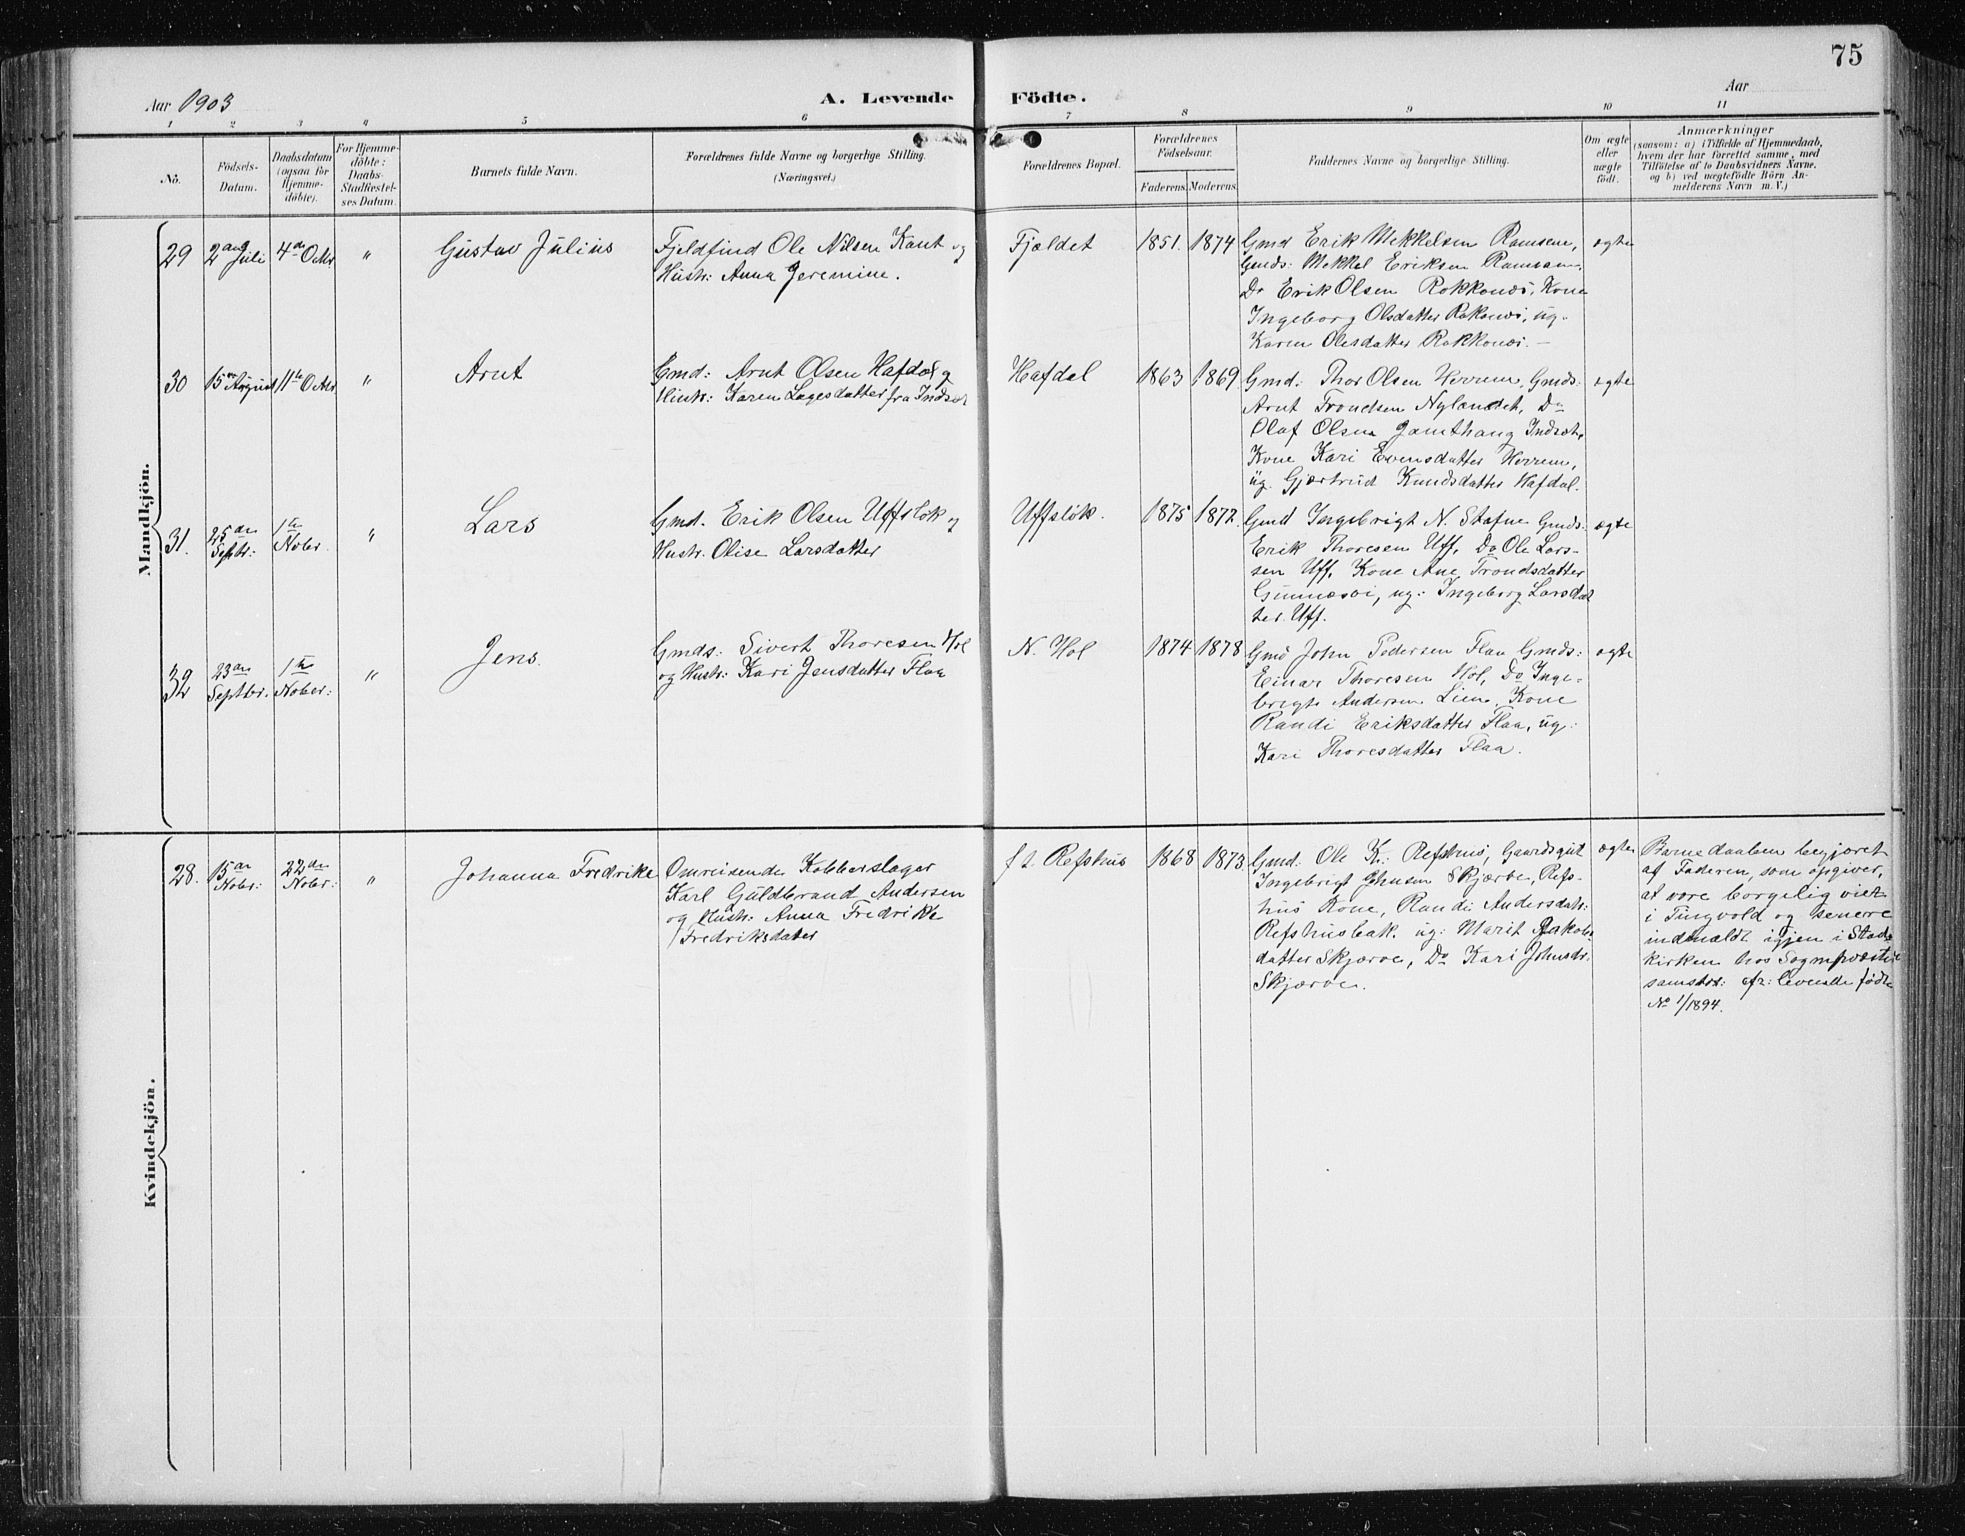 75
Aar 1903
A. Levende Födte.
Aar
1 2 3 4 5 6 7 8 9 10 11
Nô.
Födsels-
Datum.
Daabsdatum
(ogsaa for
Hjemme-
döbte).
For Hjemme-
döbte:
Daabs-
Stadfæstel-
ses Datum.
Barnets fulde Navn.
Forældrenes fulde Navne og borgerlige Stilling.
(Næringsvei.)
Forældrenes Bopæl.
Forældrenes
Födselsaar.
Faderens. Moderens.
Faddernes Navne og borgerlige Stilling.
Om ægte
eller
uægte
födt.
Anmærkninger
(saasom: a) i Tilfælde af Hjemmedaab,
hvem der har forrettet samme, med
Tilföielse af to Daabsvidners Navne,
og b) ved uægtefödte Börn An-
melderens Navn m. V.)
Mandkjön.
29
2den Juli
4de Octbr
"
Gustav Julius
Fjeldfind Ole Nilsen Kant og
Hustr: Anna Jeremine.
Fjeldet
1851. 1874
Gmd Erik Mekkelsen Ramsene,
Gmds: Mekkel Eriksen Ramsen.
Do Erik Olsen Rokkonæs, Kone
Ingeborg Olsdatter Rokonæs, ug.
Karen Olesdatter Rokkonæs. —
ægte
30
15de August
11te Octbr
"
Arnt
Gmd: Arnt Olsen Hafdal og
Hustr: Karen Lagesdatter fra Indset
Hafdal
1863 1869
Gmd: Thor Olsen Herrem, Gmds:
Arnt Trondsen Nylændet, Do
Olaf Olsen Jamthaug Indsæt,
Kone Kari Evensdatter Herrem,
ug. Gjærtrud Knudsdatter Hafdal.
ægte
31.
25de
Septbr:
1te
Nober.
"
Lars
Gmd. Erik Olsen Uffsløk og
Hustr. Olise Larsdatter
Uffsløk.
1875 1872
Gmd Ingebrigt N. Stafne Gmds:
Erik Thoresen Uff, Do Ole Lars-
sen Uff, Kone Ane Trondsdatter
Gunnesøi, ug: Ingeborg Larsdat
ter Uff.
ægte
32
23de
Septbr.
1te
Nober:
"
Jens.
Gmds: Sivert Thoresen Hol
og Hustr: Kari Jensdatter Flaa
N. Hol
1874 1878
Gmd John Pedersen Flaa Gmds:
Einar Thoresen Hol, Do Inge-
brigt Andersen Lien, Kone
Randi Eriksdatter Flaa, ug:
Kari Thoresdatter Flaa.
ægte
Kvindekjön.
28.
15de
Nobr:
22de
Nobr:
"
Johanna Fredrike
Omreisende Kobberslager
Karl Guldbrand Andersen
og Hustr: Anna Fredrikke
Fredriksdatter
f t. Refshus
1868 1873
Gmd. Ole K. Refshus, Gaardsgut
Ingebrigt Johnsen Skjærve, Refs-
hus Kone, Randi Andersdatr:
Refshusbak. ug: Marit Jakobs-
datter Skjærve, Do Kari Johnsdr.
Skjærve.
ægte
Barnedaaben begjæret
af Faderen, som opgiver,
at være borgelig viet
i Tingvold og senere
indmældt igjen i Stats
kirken hos Sognepræsten
sammesteds: cfr: levende fødte
No 1/1894.